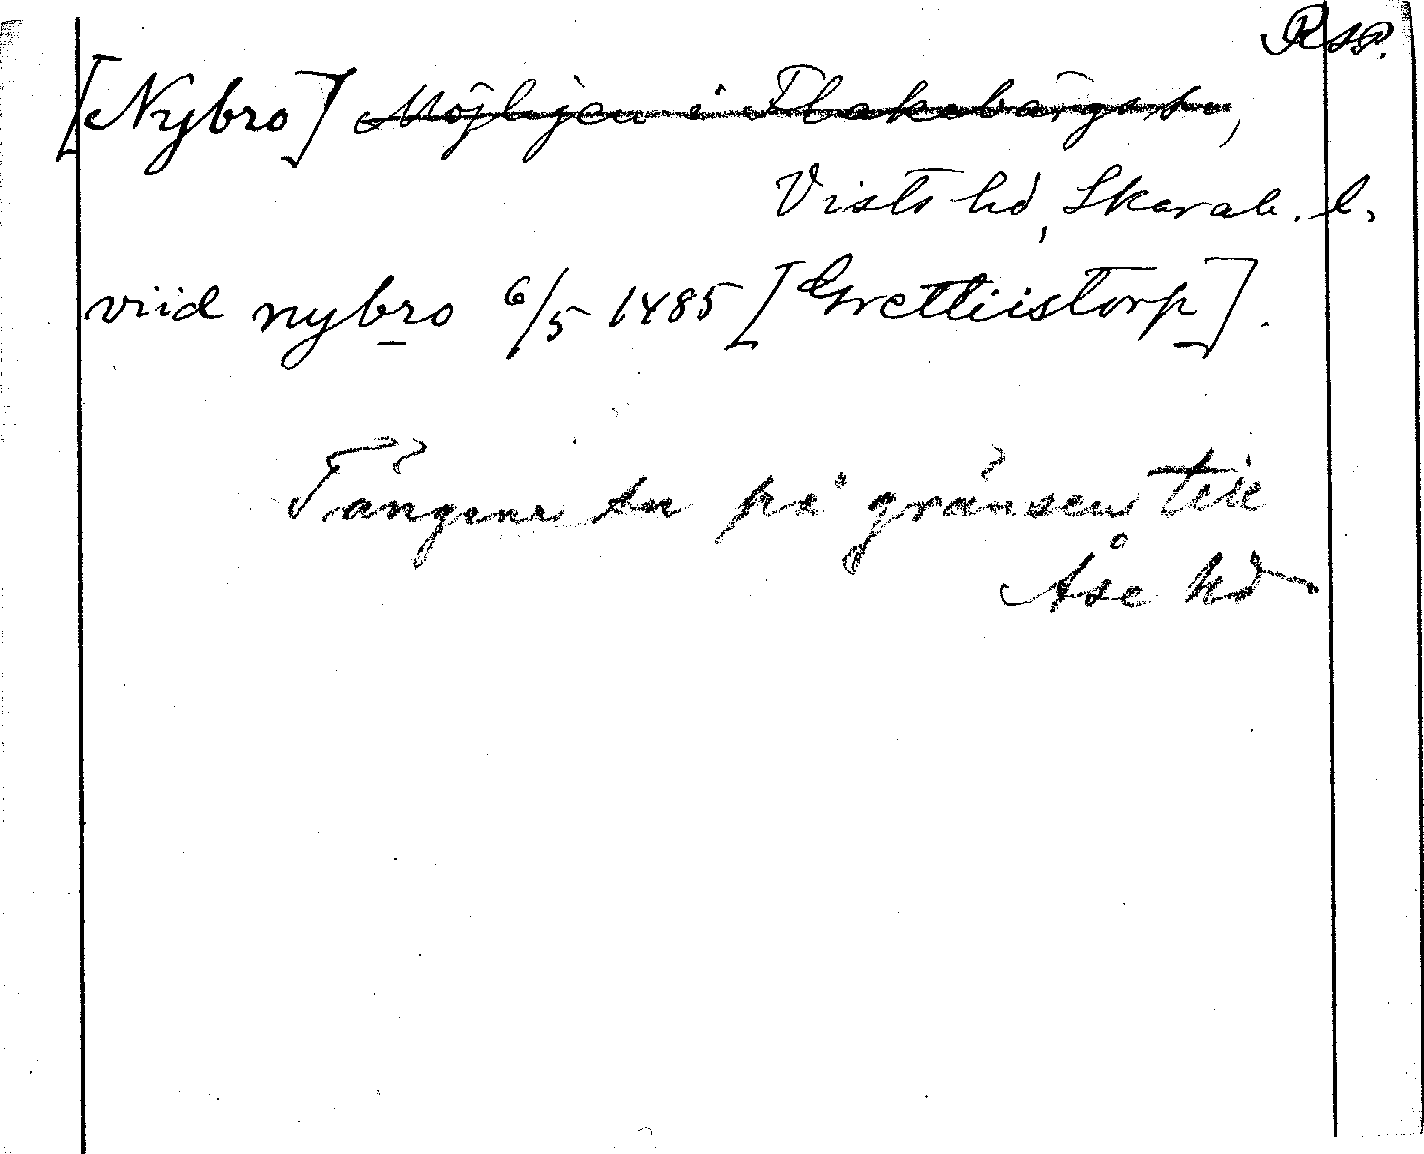 Rsp.
[Nybro] Möjligen i Flakebärgs sn,
Viste hd, Skarab. l.
viid nybro 6/5 1485 [Grettiistorp].
Tängene sn på gränsen till
Åse hd